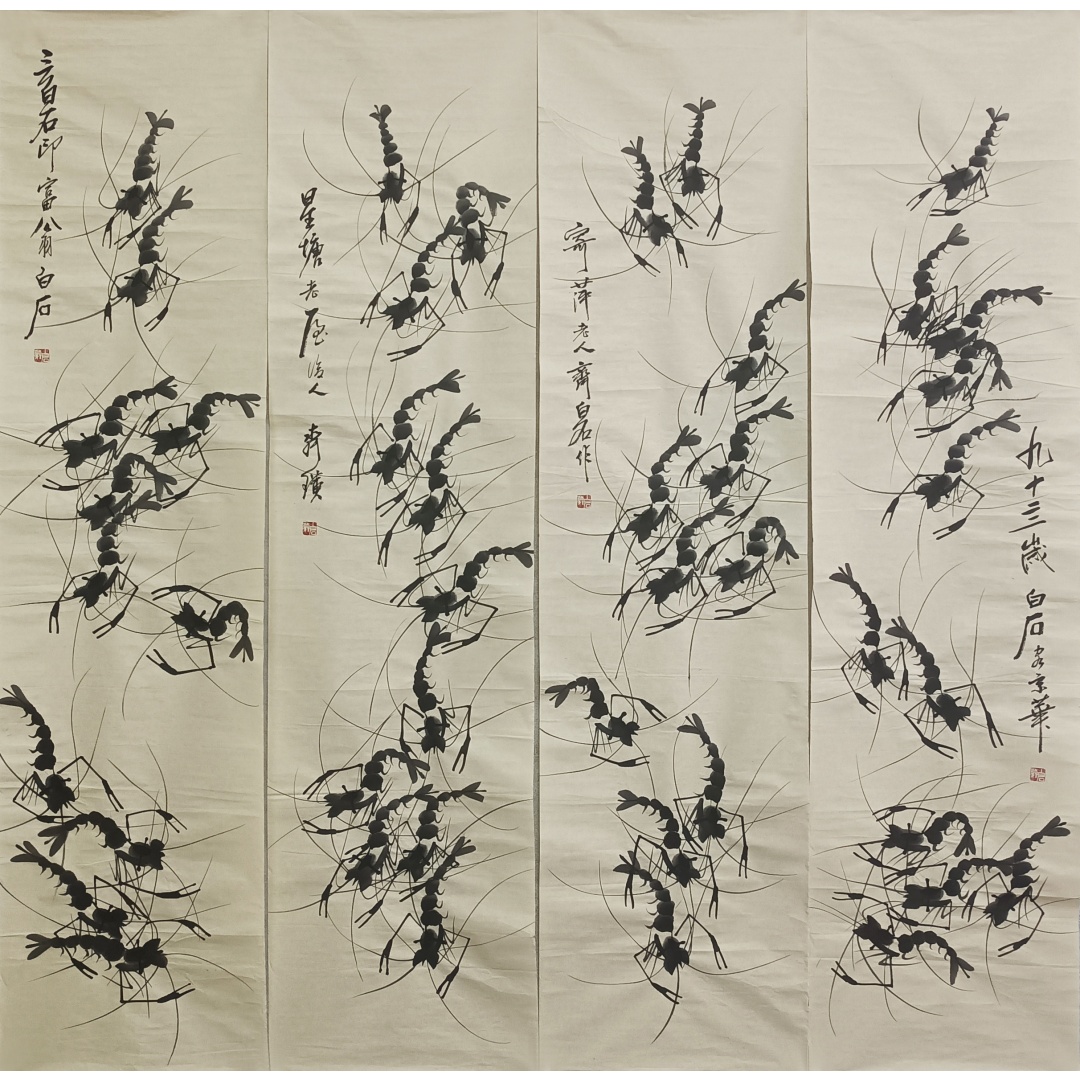 九十三歲白石客京華
寄萍老人齊白石作
星塘老屋後人 齊璜
三百石印富翁白石